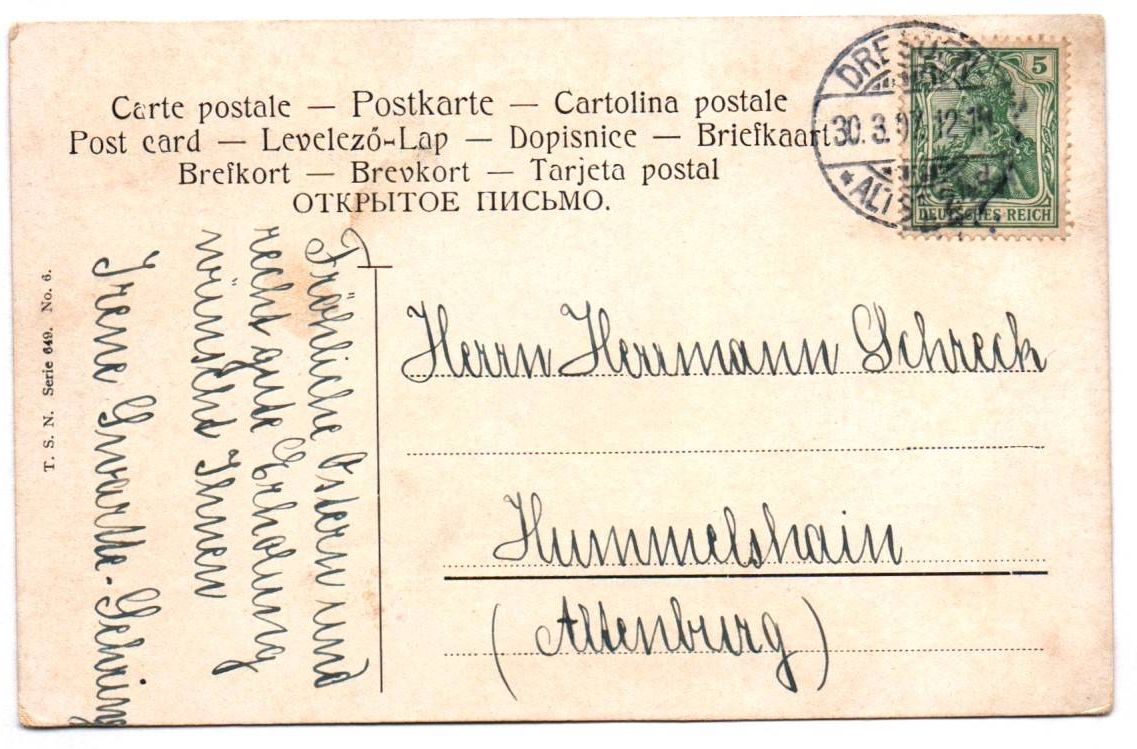 Carte postale — Postkarte — Cartolina postale
Post card — Levelező-Lap — Dopisnice — Briefkaart
Brefkort — Brevkort — Tarjeta postal
ОТКРЫТОЕ ПИСЬМО.
DRESDEN
30.3.07. 12-1N
* ALTST.
5
DEUTSCHES REICH
T. S. N. Serie 649. No. 6.
Fröhliche Ostern und
recht gute Erholung
wünscht Ihnen
Irene
Herrn Herrmann Schreck
Hummelshain
(Altenburg)